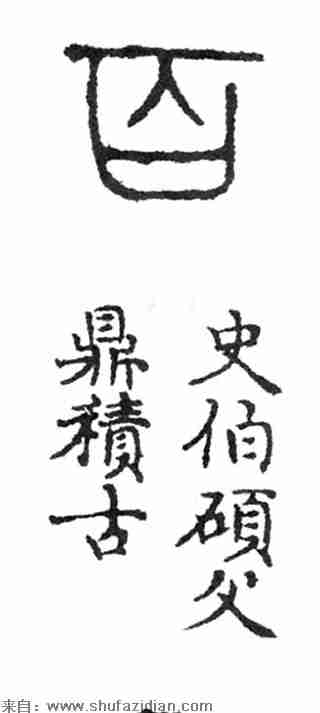 百
史伯碩父
鼎積古
来自：www.shufazidian.com